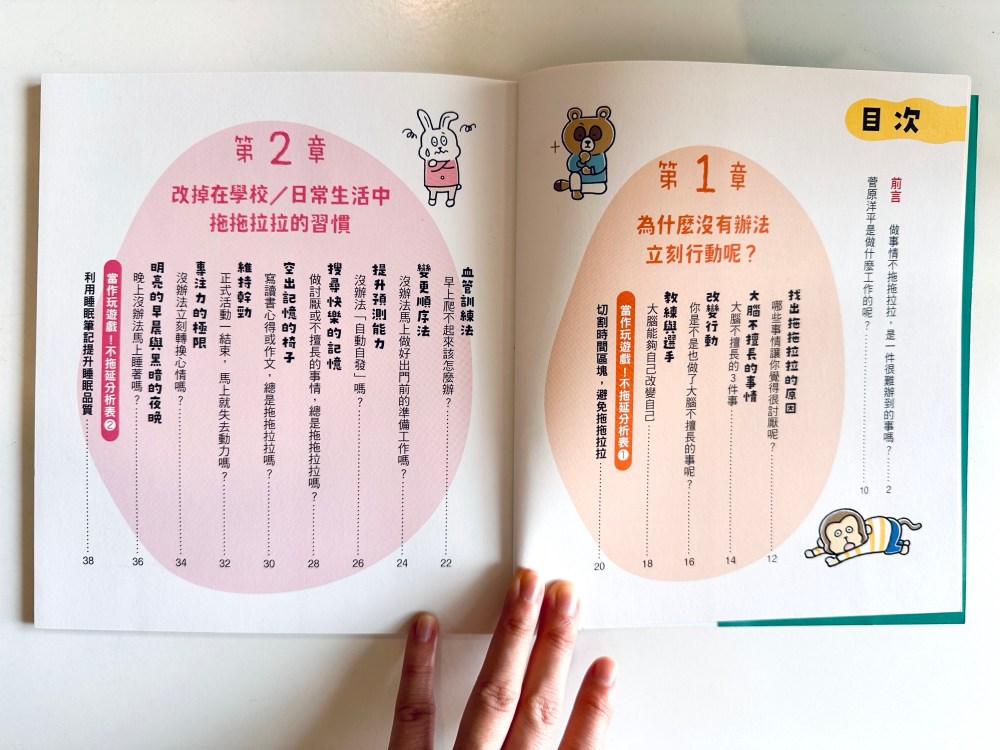 目次
前言
做事情不拖拖拉拉，是一件很難辦到的事嗎？ 2
菅原洋平是做什麼工作的呢？ 10
第1章
為什麼沒有辦法
立刻行動呢？
找出拖拖拉拉的原因
哪些事情讓你覺得很討厭呢？ 12
大腦不擅長的事情
大腦不擅長的3件事 14
改變行動
你是不是也做了大腦不擅長的事呢？ 16
教練與選手
大腦能夠自己改變自己 18
當作玩遊戲！不拖延分析表❶
切割時間區塊，避免拖拖拉拉 20
第2章
改掉在學校／日常生活中
拖拖拉拉的習慣
血管訓練法
早上爬不起來該怎麼辦？ 22
變更順序法
沒辦法馬上做好出門前的準備工作嗎？ 24
提升預測能力
沒辦法「自動自發」嗎？ 26
搜尋快樂的記憶
做討厭或不擅長的事情，總是拖拖拉拉嗎？ 28
空出記憶的椅子
寫讀書心得或作文，總是拖拖拉拉嗎？ 30
維持幹勁
正式活動一結束，馬上就失去動力嗎？ 32
專注力的極限
沒辦法立刻轉換心情嗎？ 34
明亮的早晨與黑暗的夜晚
晚上沒辦法馬上睡著嗎？ 36
當作玩遊戲！不拖延分析表❷
利用睡眠筆記提升睡眠品質 38